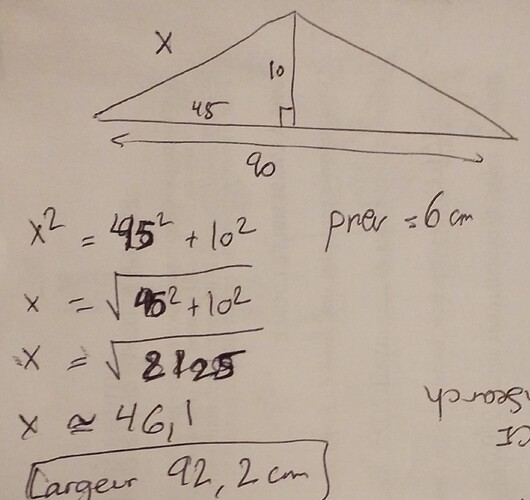 x
10
45
90
x² = 45² + 10²
prev = 6 cm
x = √45² + 10²
x = √2125
x ≃ 46,1
Largeur 92,2 cm
search